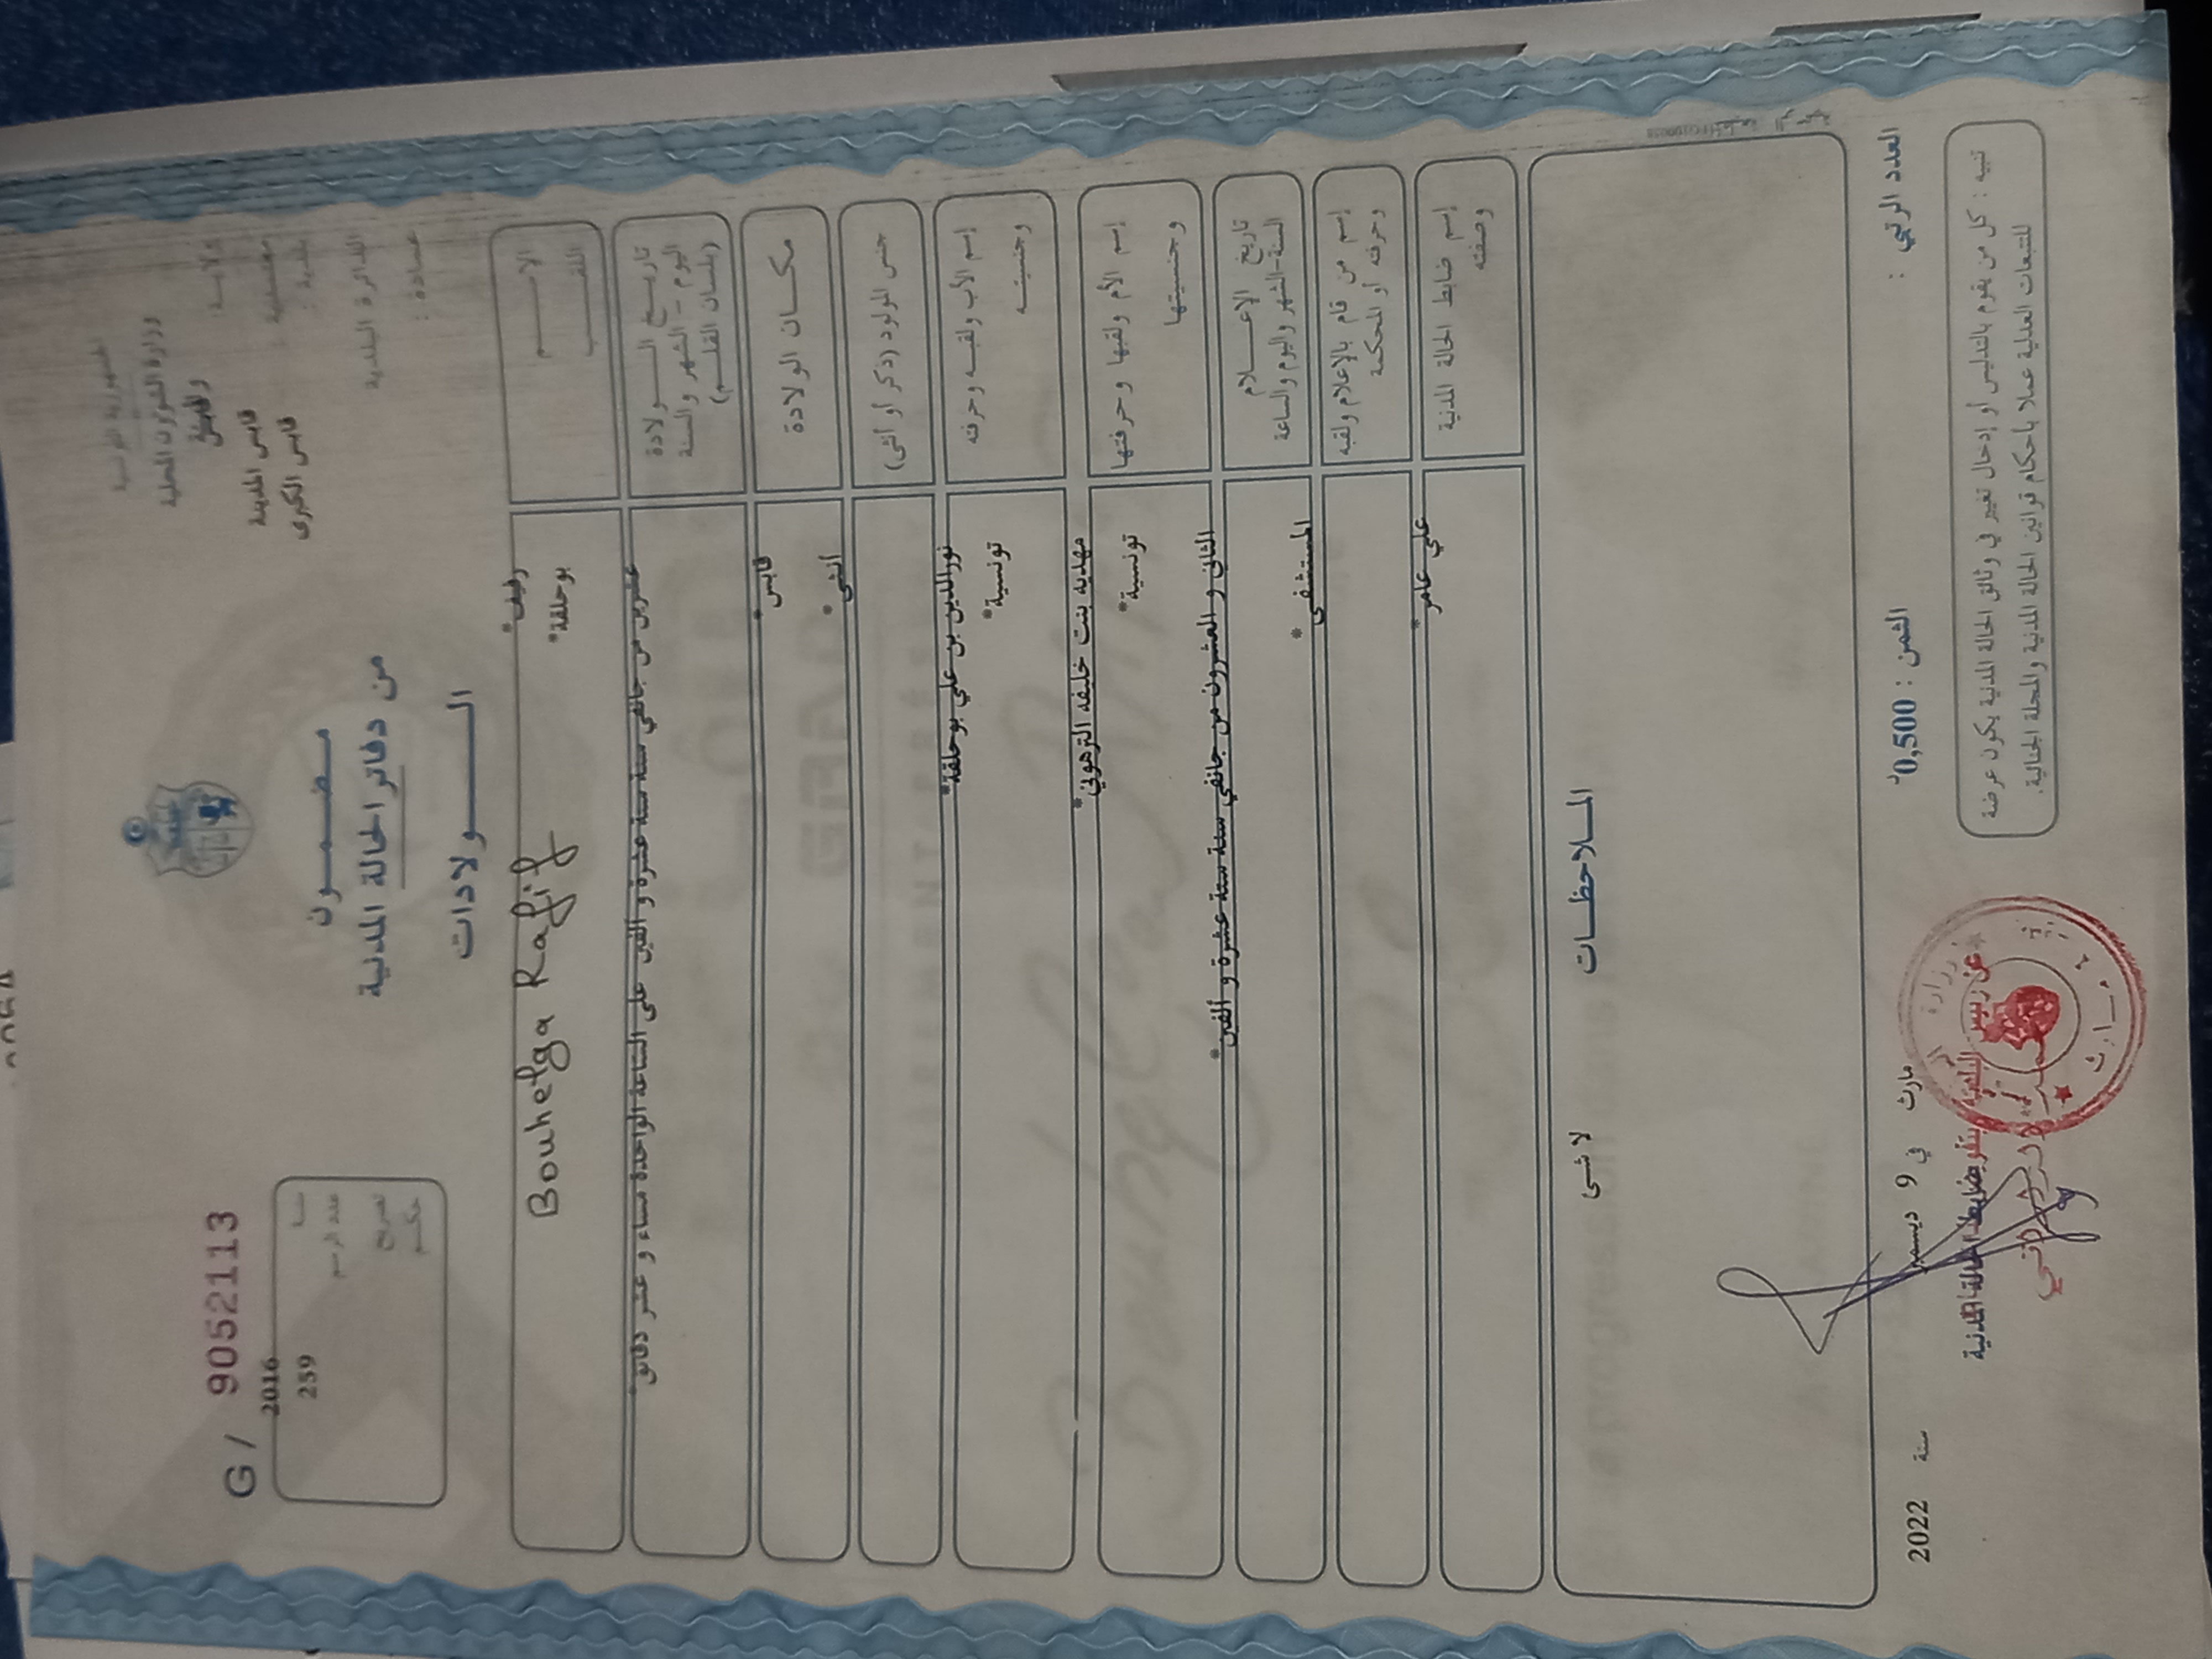 الجمهورية التونسية
وزارة الشؤون المحلية
ولاية: قابس
معتمدية: قابس المدينة
بلدية: قابس الكبرى
الدائرة البلدية
عمادة:
مضمون
من دفاتر الحالة المدنية
الولادات
G / 9052113
سنة 2016
عدد الرسم 259
تصريح
حكم
الاسم رفيف*
اللقب بوحلقة*
Bouhelga Rafif
تاريخ الولادة
اليوم - الشهر والسنة
(بلسان القلم)
عشرين من جانفي سنة ستة عشرة و ألفين على الساعة الواحدة مساء و عشر دقائق*
مكان الولادة قابس*
جنس المولود (ذكر أو أنثى) أنثى*
إسم الأب ولقبه وحرفته نورالدين بن علي بوحلقة*
وجنسيته تونسية*
إسم الأم ولقبها وحرفتها مهديه بنت خليفه الترهوني*
وجنسيتها تونسية*
تاريخ الإعلام
السنة-الشهر واليوم والساعة
الثاني و العشرون من جانفي سنة ستة عشرة و ألفين*
إسم من قام بالإعلام ولقبه
وحرفته أو المحكمة
المستشفى*
إسم ضابط الحالة المدنية
وصفته
علي عامر*
الملاحظات
لا شى
العدد الرتبي :
الثمن : 0,500د
مارث في 9 ديسمبر سنة 2022
عن رئيس البلدية بتفويض
ضابط الحالة المدنية
تنبيه : كل من يقوم بالتدليس أو إدخال تغيير في وثائق الحالة المدنية يكون عرضة
للتتبعات العدلية عملا بأحكام قوانين الحالة المدنية والمجلة الجنائية.